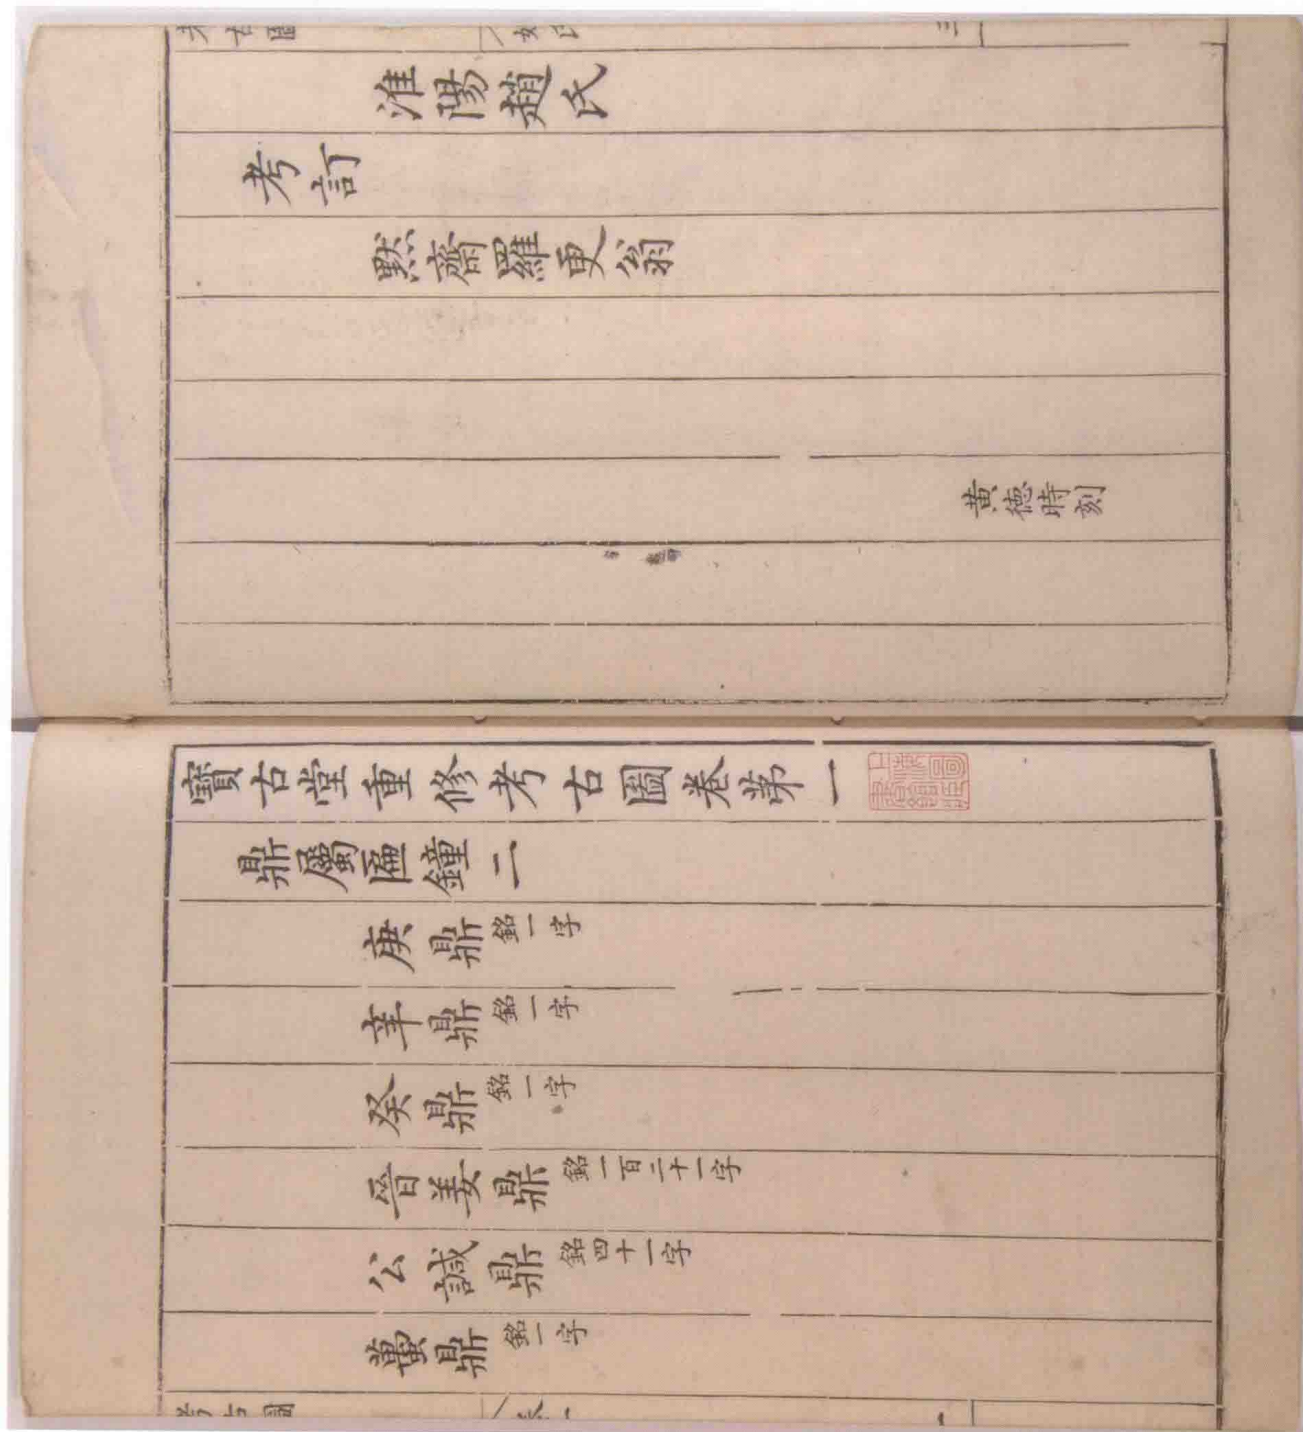 淮陽趙氏
考訂
默齋羅更翁
黃德時刻
寶古堂重修考古圖卷苐一
鼎屬匾鐘二
庚鼎銘一字
辛鼎銘一字
癸鼎銘一字
晉姜鼎銘一百二十一字
公諴鼎銘四十一字
蠆鼎銘一字